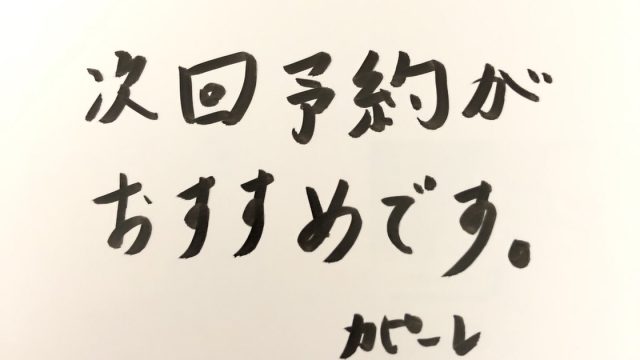 次回予約が
おすすめです。
カピーレ